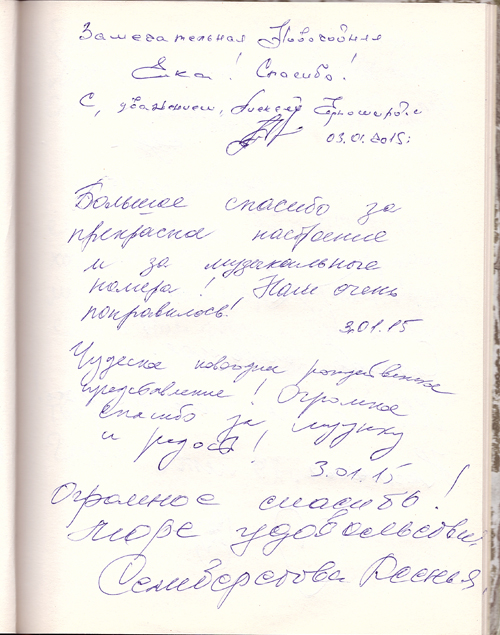 Замечательная Новогодняя
Ёлка! Спасибо!
С, уважением, Алексей
03.01.2015г
Большое спасибо за
прекрасное настроение
и за музыкальные
номера! Нам очень
понравилось!
3.01.15
Чудесное новогоднее рождественское
представление! Огромное
спасибо за музыку
и радость!
3.01.15
Огромное спасибо!
Море удовольствия.
Селиверстова